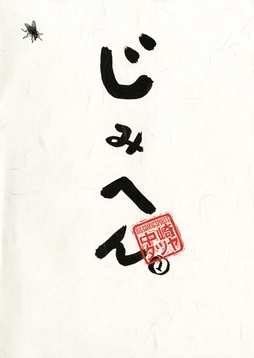 じみへん
中崎タツヤ